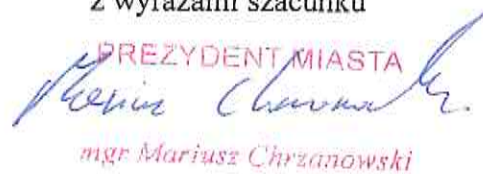 z wyrazami szacunku
PREZYDENT MIASTA
mgr Mariusz Chrzanowski